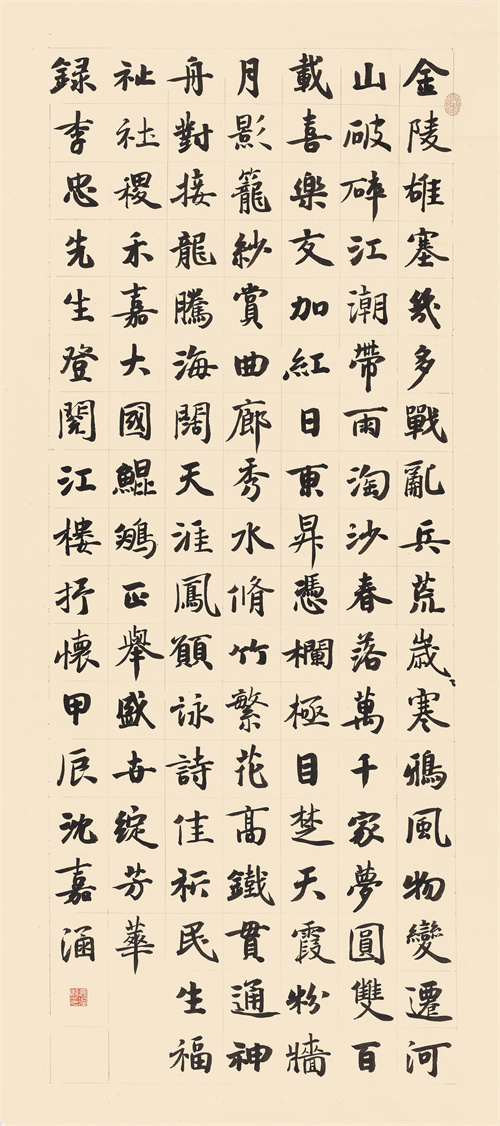 金陵雄塞幾多戰亂兵荒歲寒鴉風物變遷河
山破碎江潮帶雨淘沙春落萬千家夢圓雙百
載喜樂交加紅日東昇憑欄極目楚天霞粉牆
月影籠紗賞曲廊秀水脩竹繁花高鐵貫通神
舟對接龍騰海闊天涯鳳願詠詩佳祈民生福
祉社稷禾嘉大國鯤鵬正舉盛世綻芳華
録李忠先生登閱江樓抒懷甲辰沈嘉涵